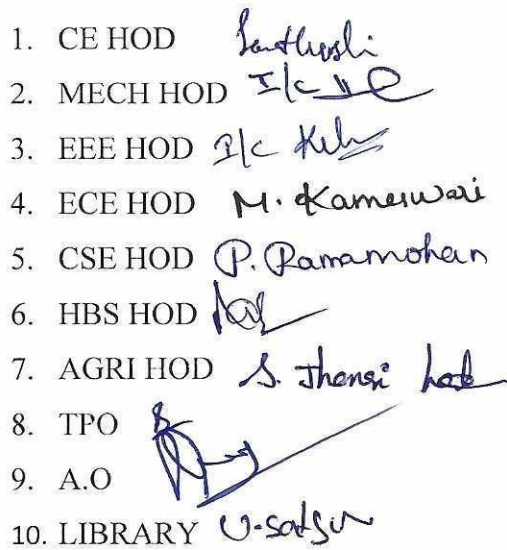 1. CE HOD Santhoshi
2. MECH HOD I/c
3. EEE HOD I/c
4. ECE HOD M. Kameswari
5. CSE HOD P. Ramamohan
6. HBS HOD
7. AGRI HOD S. Jhansi
8. TPO
9. A.O
10. LIBRARY